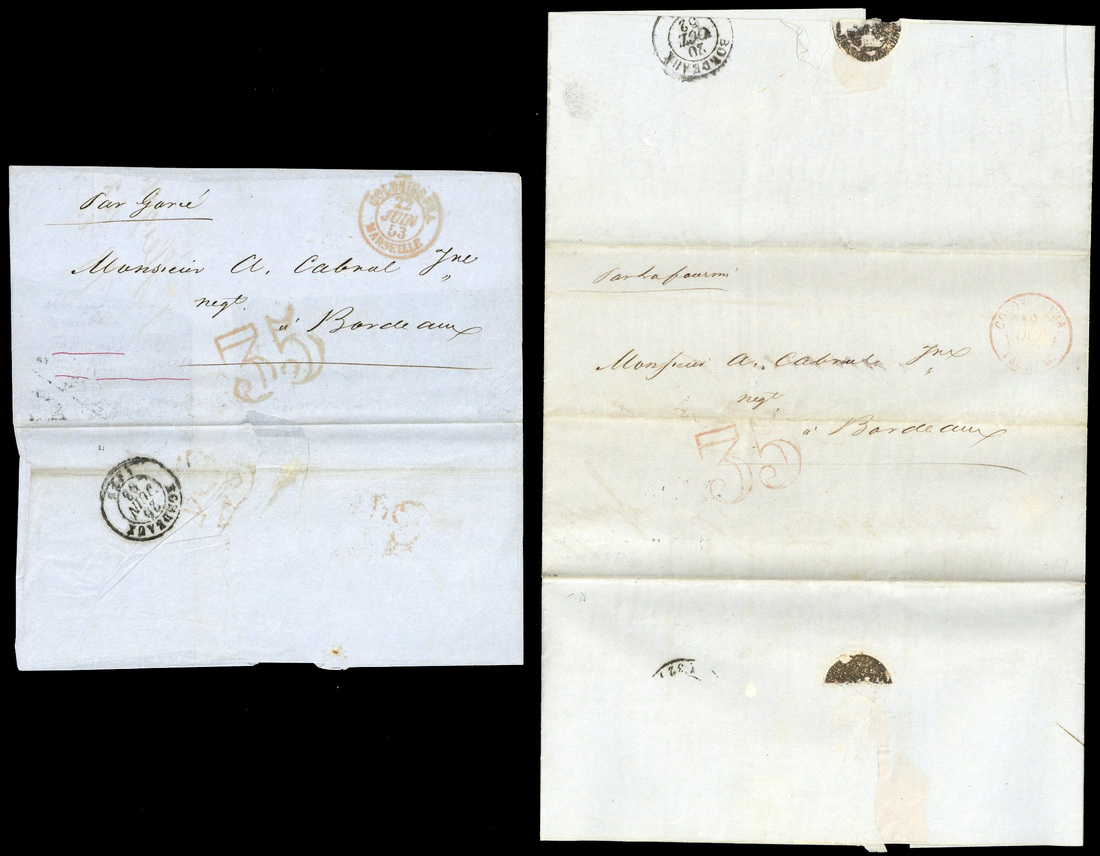 Par Gorée
COLONIES FRA
22
JUIN
53
MARSEILLE
Monsieur A. Cabral Jne
negt.
à Bordeaux
35
BORDEAUX
25
JUIN
53
(32)
BORDEAUX
20
OCT
52
Par La fourmi
COLONIES FRA
Monsieur A. Cabral Jne
negt
à Bordeaux
35
(32)